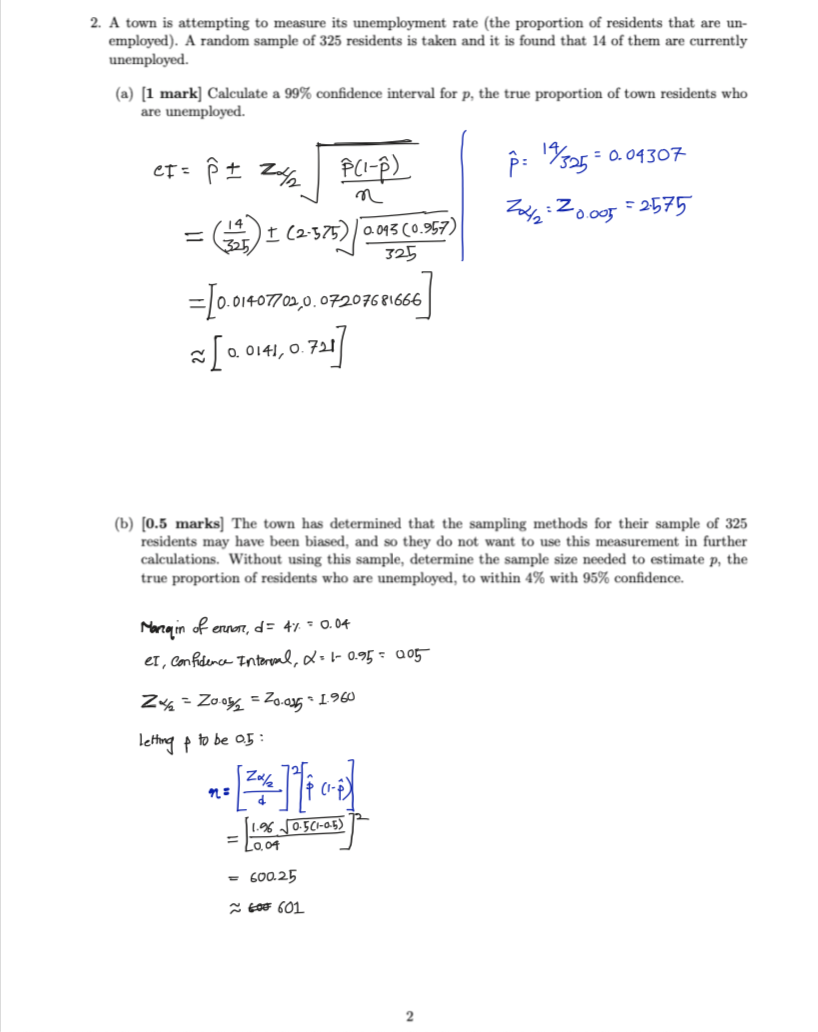 2. A town is attempting to measure its unemployment rate (the proportion of residents that are un-
employed). A random sample of 325 residents is taken and it is found that 14 of them are currently
unemployed.
(a) [1 mark] Calculate a 99% confidence interval for p, the true proportion of town residents who
are unemployed.
CI = p̂ ± Zα/2 √(p̂(1-p̂)/n)
= (14/325) ± (2.575) √(0.043(0.957)/325)
= [0.01407702, 0.07207681666]
≈ [0.0141, 0.721]
p̂: 14/325 = 0.04307
Zα/2 : Z0.005 = 2.575
(b) [0.5 marks] The town has determined that the sampling methods for their sample of 325
residents may have been biased, and so they do not want to use this measurement in further
calculations. Without using this sample, determine the sample size needed to estimate p, the
true proportion of residents who are unemployed, to within 4% with 95% confidence.
Margin of error, d = 4% = 0.04
CI, Confidence Interval, α = 1 - 0.95 = 0.05
Zα/2 = Z0.05/2 = Z0.025 = 1.960
letting p to be 0.5 :
n = [Zα/2 / d]² [p̂ (1-p̂)]
= [1.96 √0.5(1-0.5) / 0.04]²
= 600.25
≈ 600 601
2